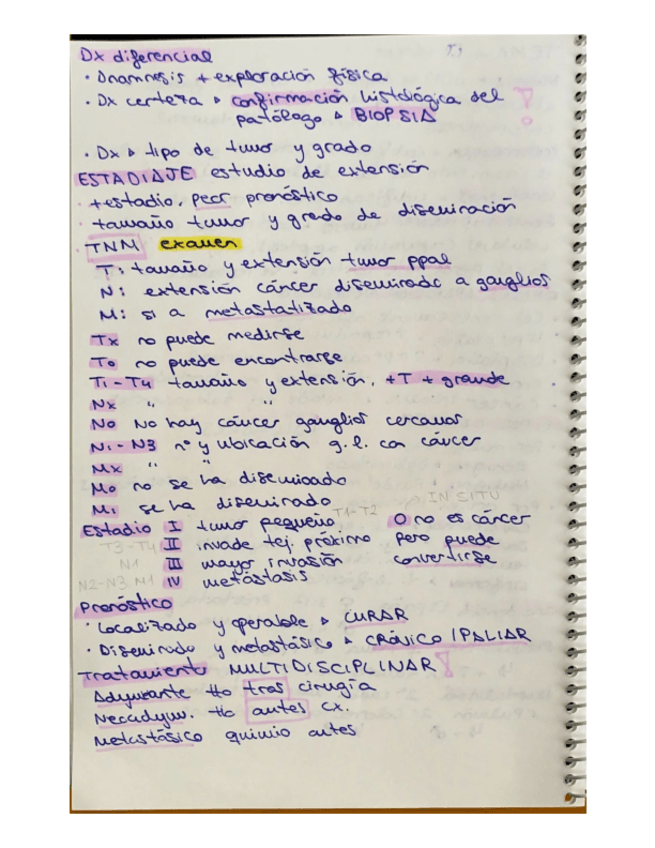 Dx diferencial
· Anamnesis + exploración física
· Dx certeza ▹ confirmación histológica del
patólogo ▹ BIOPSIA
· Dx ▹ tipo de tumor y grado
ESTADIAJE estudio de extensión
· +estadio, peor pronóstico
· tamaño tumor y grado de diseminación
· TNM examen
T: tamaño y extensión tumor ppal
N: extensión cáncer diseminado a ganglios
M: si a metastatizado
Tx no puede medirse
To no puede encontrarse
T1-T4 tamaño y extensión, +T + grande
Nx " "
No No hay cáncer ganglios cercanos
N1-N3 nº y ubicación g.l. con cáncer
Mx " "
Mo no se ha diseminado
M1 se ha diseminado
IN SITU
Estadio I tumor pequeño T1-T2 O no es cáncer
T3-T4 II invade tej. próximo pero puede
N1 III mayor invasión convertirse
N2-N3 M1 IV metástasis
Pronóstico
· Localizado y operable ▹ CURAR
· Diseminado y metastásico ▹ CRÓNICO / PALIAR
Tratamiento MULTIDISCIPLINAR!
Adyuvante tto tras cirugía
Neoadyuv. tto antes cx.
Metastásico quimio antes